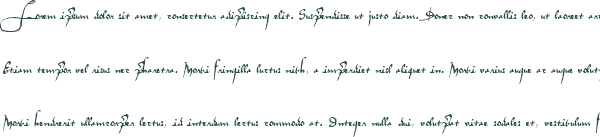 Lorem ipsum dolor sit amet, consectetur adipiscing elit. Suspendisse ut justo diam. Donec non convallis leo, ut laoreet arc
Etiam tempor vel risus nec pharetra. Morbi fringilla luctus nibh, a imperdiet nisl aliquet in. Morbi varius augue ac augue volut
Morbi hendrerit ullamcorper lectus, id interdum lectus commodo at. Integer nulla dui, volutpat vitae sodales et, vestibulum